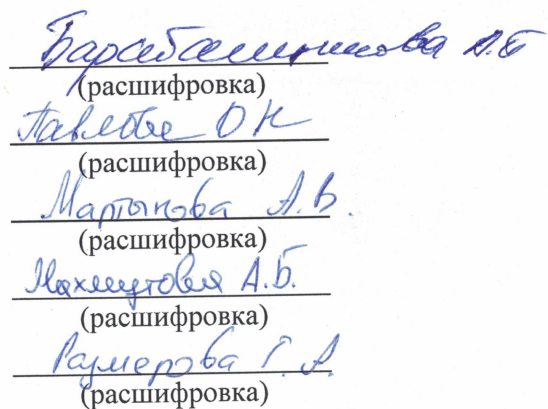 Барабанщикова
(расшифровка)
О Н
(расшифровка)
Мартынова А.В.
(расшифровка)
А.Б.
(расшифровка)
Размерова Г. А.
(расшифровка)